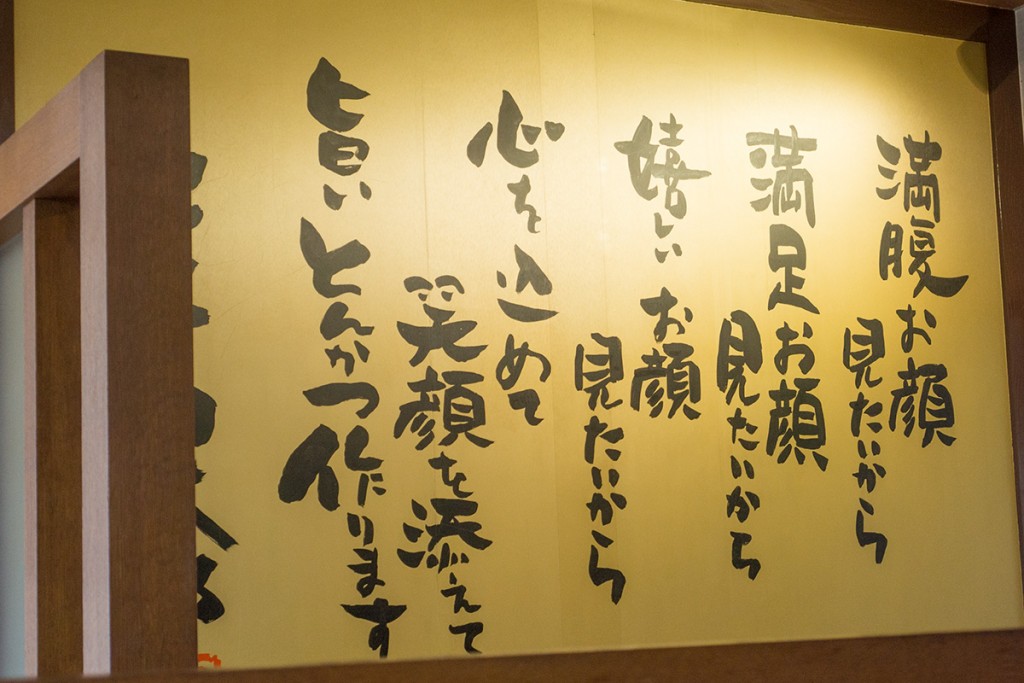 満腹お顔
見たいから
満足お顔
見たいから
嬉しいお顔
見たいから
心を込めて
笑顔を添えて
旨いとんかつ
作ります